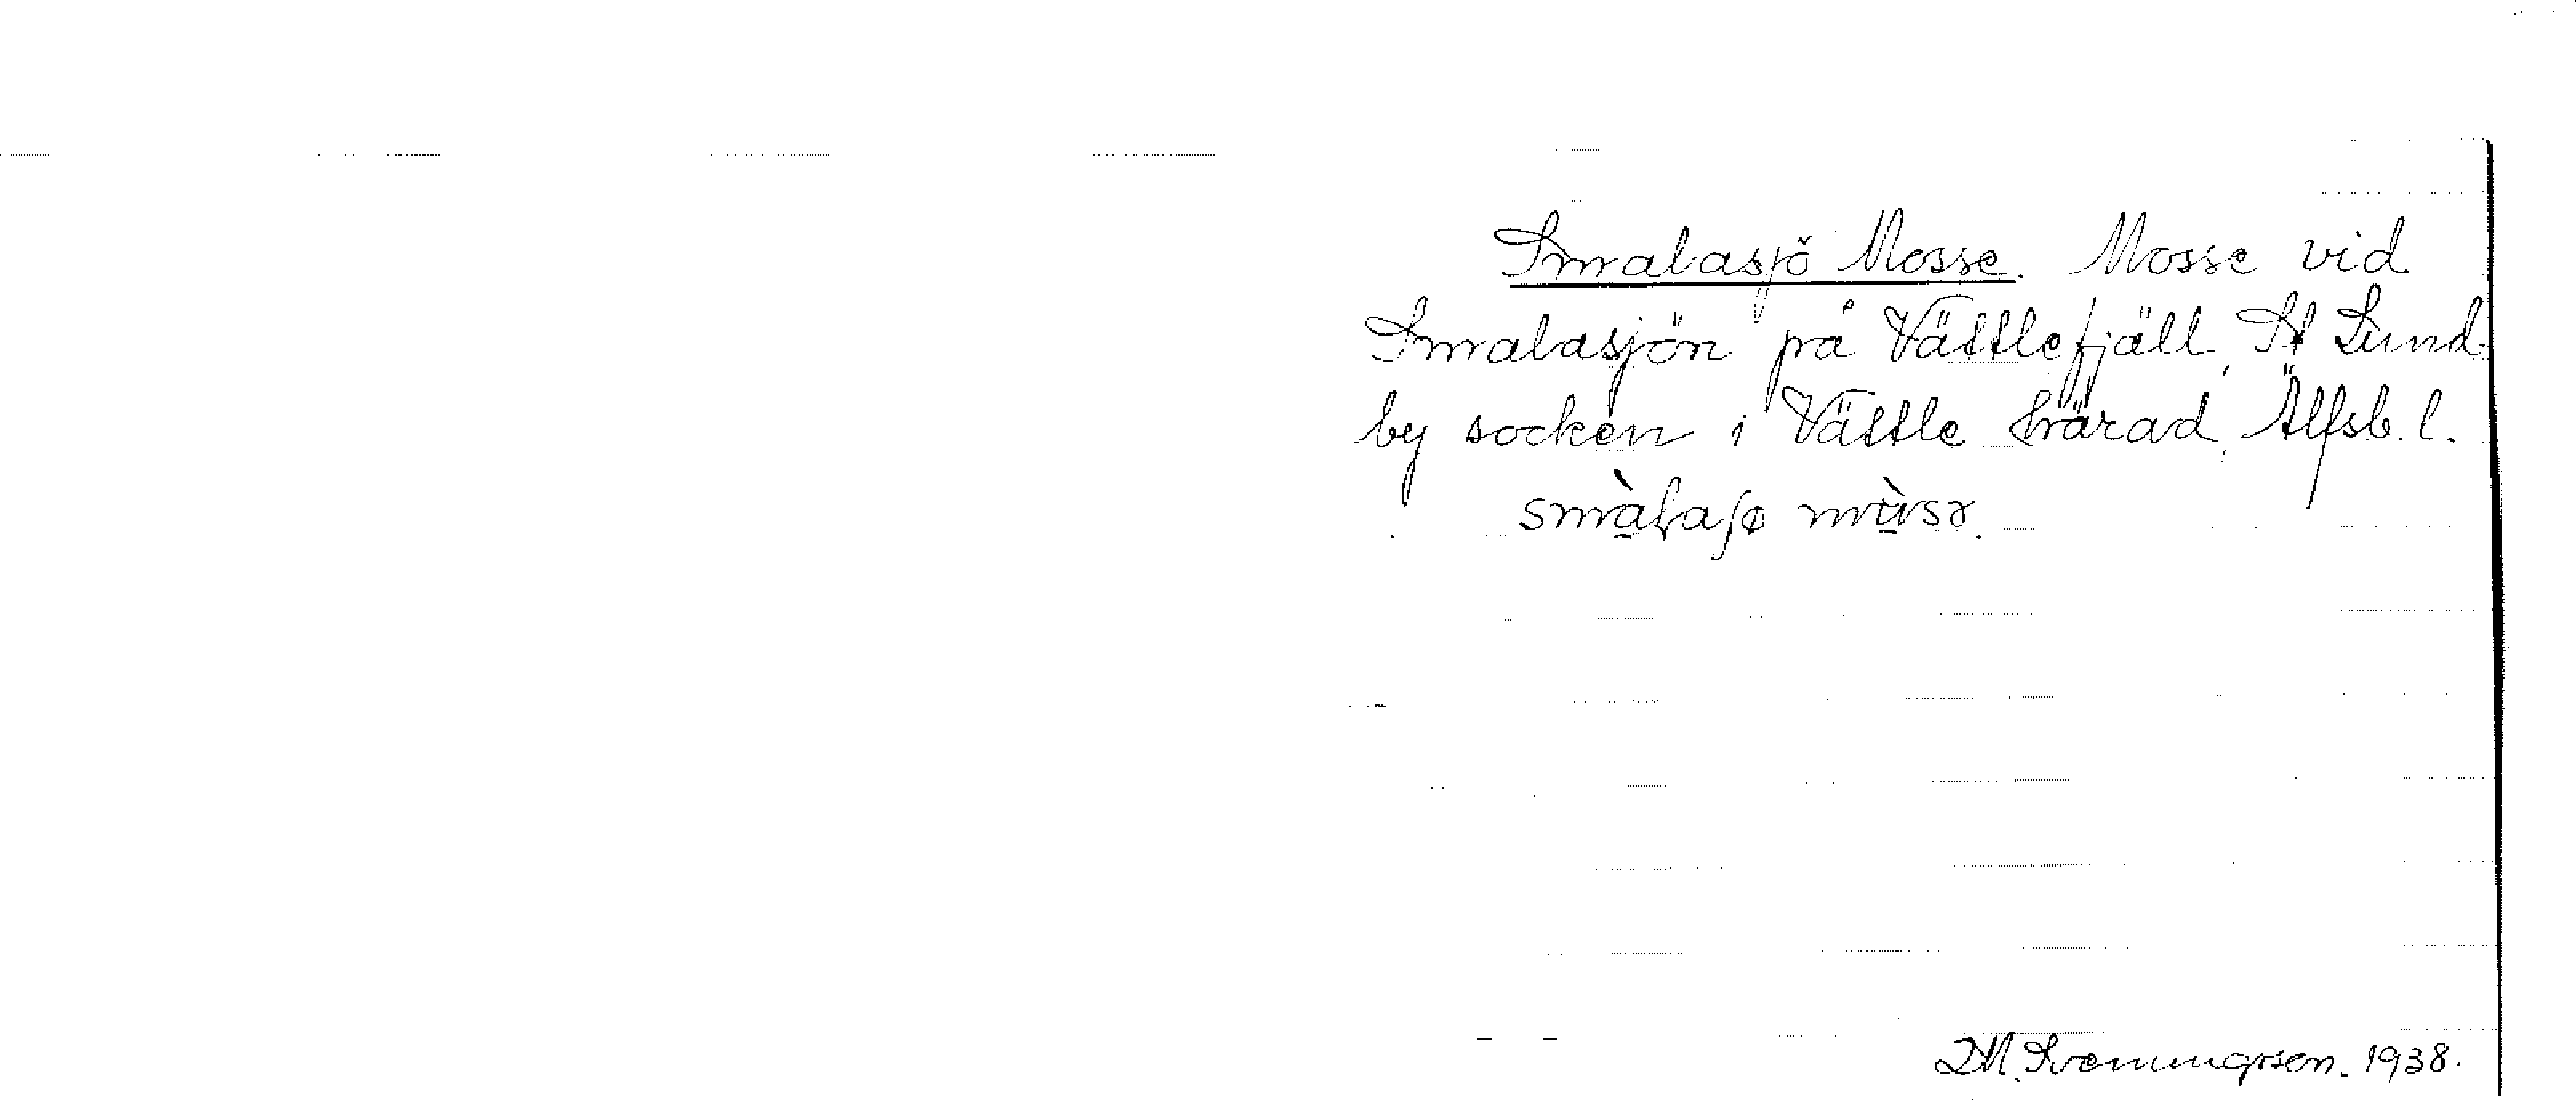 Smalasjö Mosse. Mosse vid
Smalasjön på Vättlefjäll, St. Lund-
by socken i Vättle härad, Älfsb. l.
smàlaʃø mùsɤ.
D.M. Svenungsson. 1938.